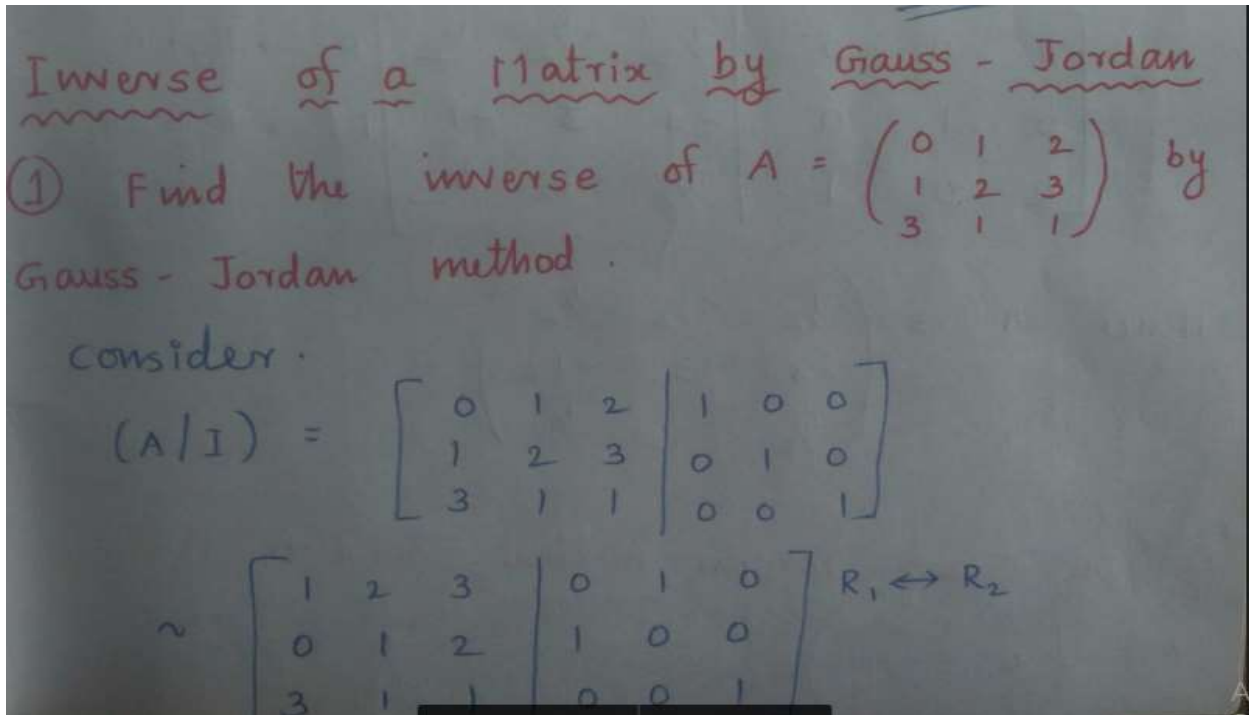 Inverse of a Matrix by Gauss - Jordan
① Find the inverse of A = ( 0 1 2 ) by
1 2 3
3 1 1
Gauss - Jordan method.
consider.
(A/I) = [ 0 1 2 | 1 0 0 ]
1 2 3 | 0 1 0
3 1 1 | 0 0 1
~ [ 1 2 3 | 0 1 0 ] R₁ ↔ R₂
0 1 2 | 1 0 0
3 1 1 | 0 0 1